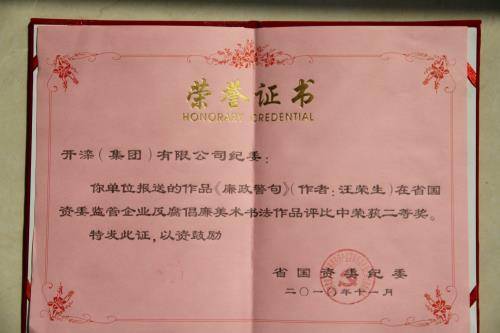 荣誉证书
HONORARY CREDENTIAL
开滦（集团）有限公司纪委：
你单位报送的作品《廉政警句》（作者：汪荣生）在省国
资委监管企业反腐倡廉美术书法作品评比中荣获二等奖。
特发此证，以资鼓励
省国资委纪委
二〇一〇年十一月